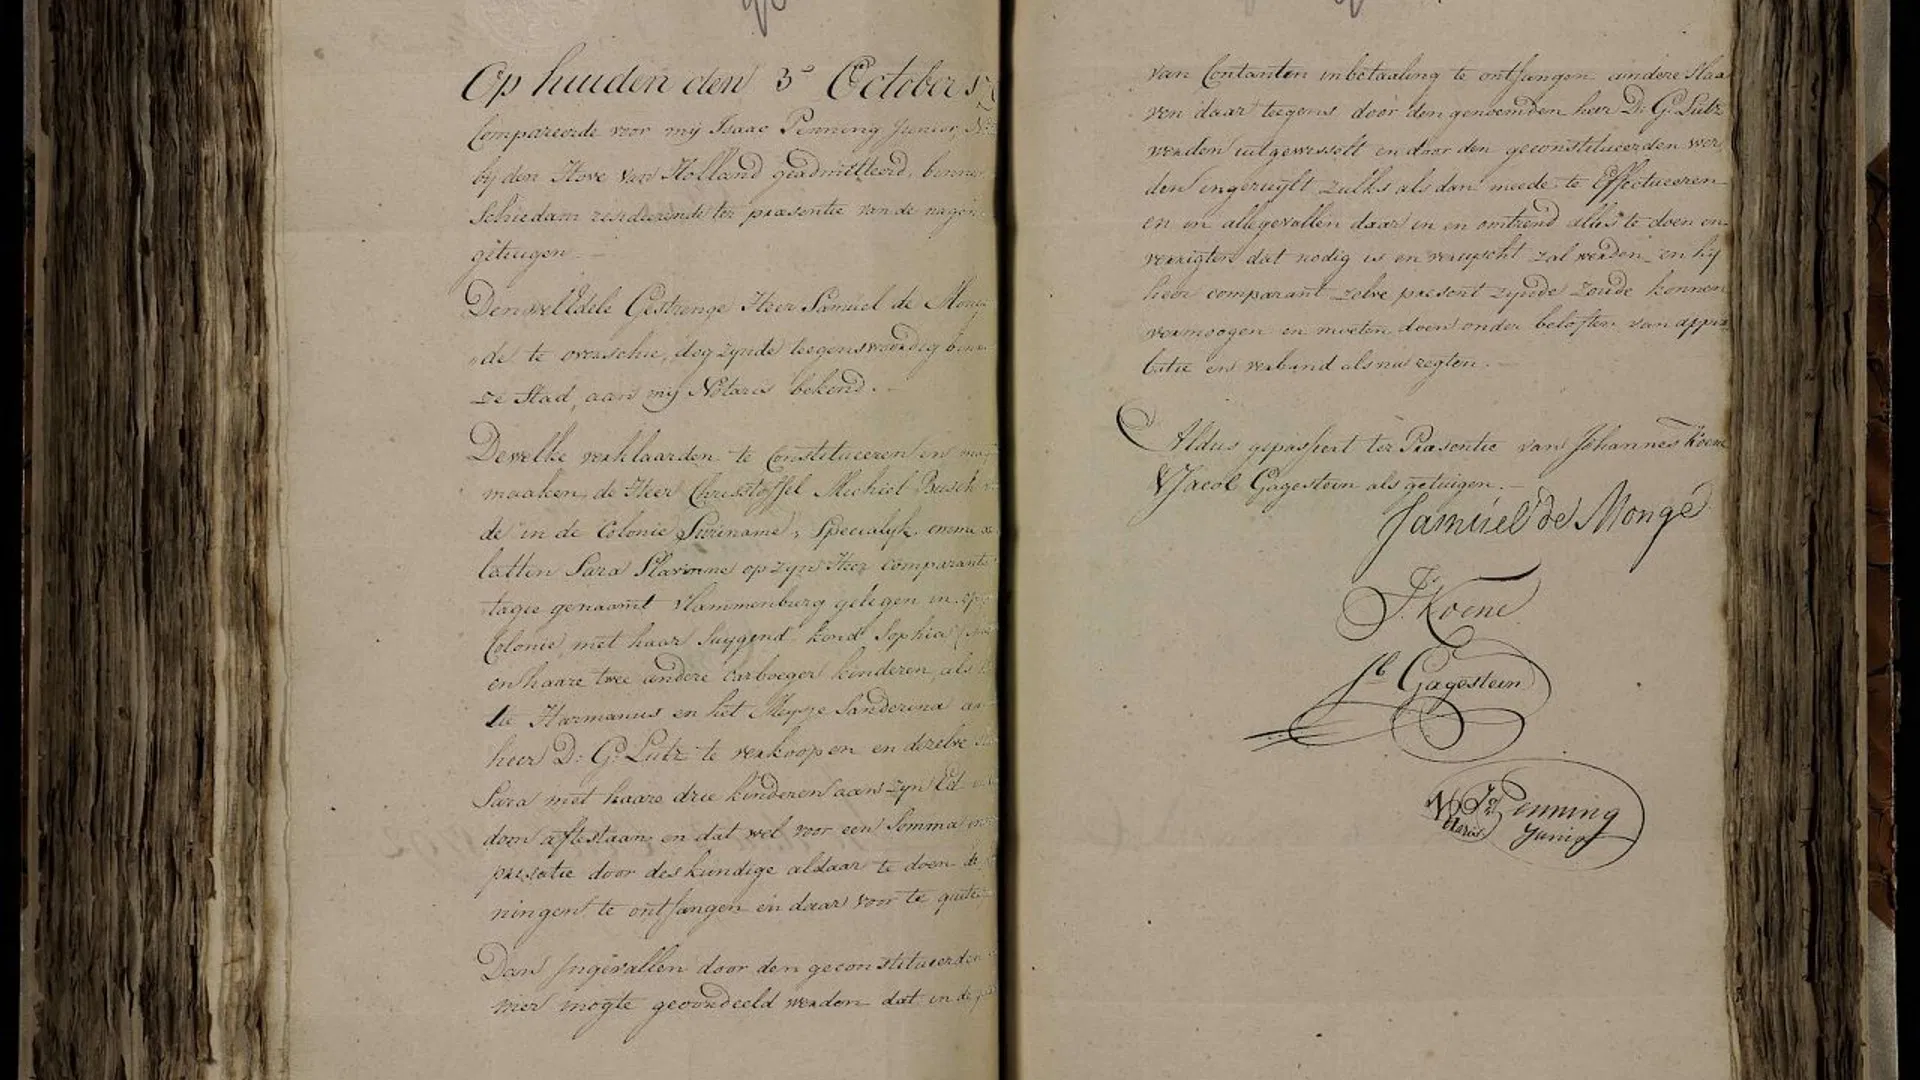 Op huiden den 3e October
Compareerde voor mij Isaac Penning Junior,
bij den Hove van Holland geadmitteerd, binne
Schiedam resideerende ter præsentie van de nagen
getuigen
Den welEdele Gestrenge Heer Samuel de Mong
de te overschie, dog zynde teegenswoordig binn
ze Stad, aan mij Notaris bekend.
Dewelke verklaarden te Constitueeren en mag
maaken, de Heer Christoffel Michiel Busch
de in de Colonie Suriname, Specialyk, omme
latten Sara Slavinne op zyn Heer comparants
tagie genaamt Vlammenburg gelegen in op
Colonie, met haar Suygend kind Sophia
en haare twee andere carboeger kinderen, als
te Harmanus en het Meysze Sanderina aan
heer D: G: Lutz te verkoopen en dezelve
Sara met haare drie kinderen aan zyn Ed
dom aftestaan, en dat wel voor een Somma
prisatie door deskundige aldaar te doen
ningen, te ontfangen en daar voor te quite
Dan Ingevallen door den geconstitueerden
mogte geoordeeld werden dat in de
van Contanten in betaaling te ontfangen andere slaa
ven daar teegens door den genoemden heer D: G: Lutz
werden uitgewisselt en door den geconstitueerden wer
den ingeruylt zulks als dan meede te Effectueeren
en in alle gevallen daar in en omtrend alles te doen en
verrigten dat nodig is en vereyscht zal werden en hij
heer comparant zelve present zynde zoude konnen
vermoogen en moeten doen onder beloften van appro
batie en verband als na regten.
Aldus gepasseert ter Præsentie van Johannes Koene
& Jacob Gagestein als getuigen.
Samuel de Mongé
Js. Koene
Jb Gagestein
Is: Penning
Junior
Notaris